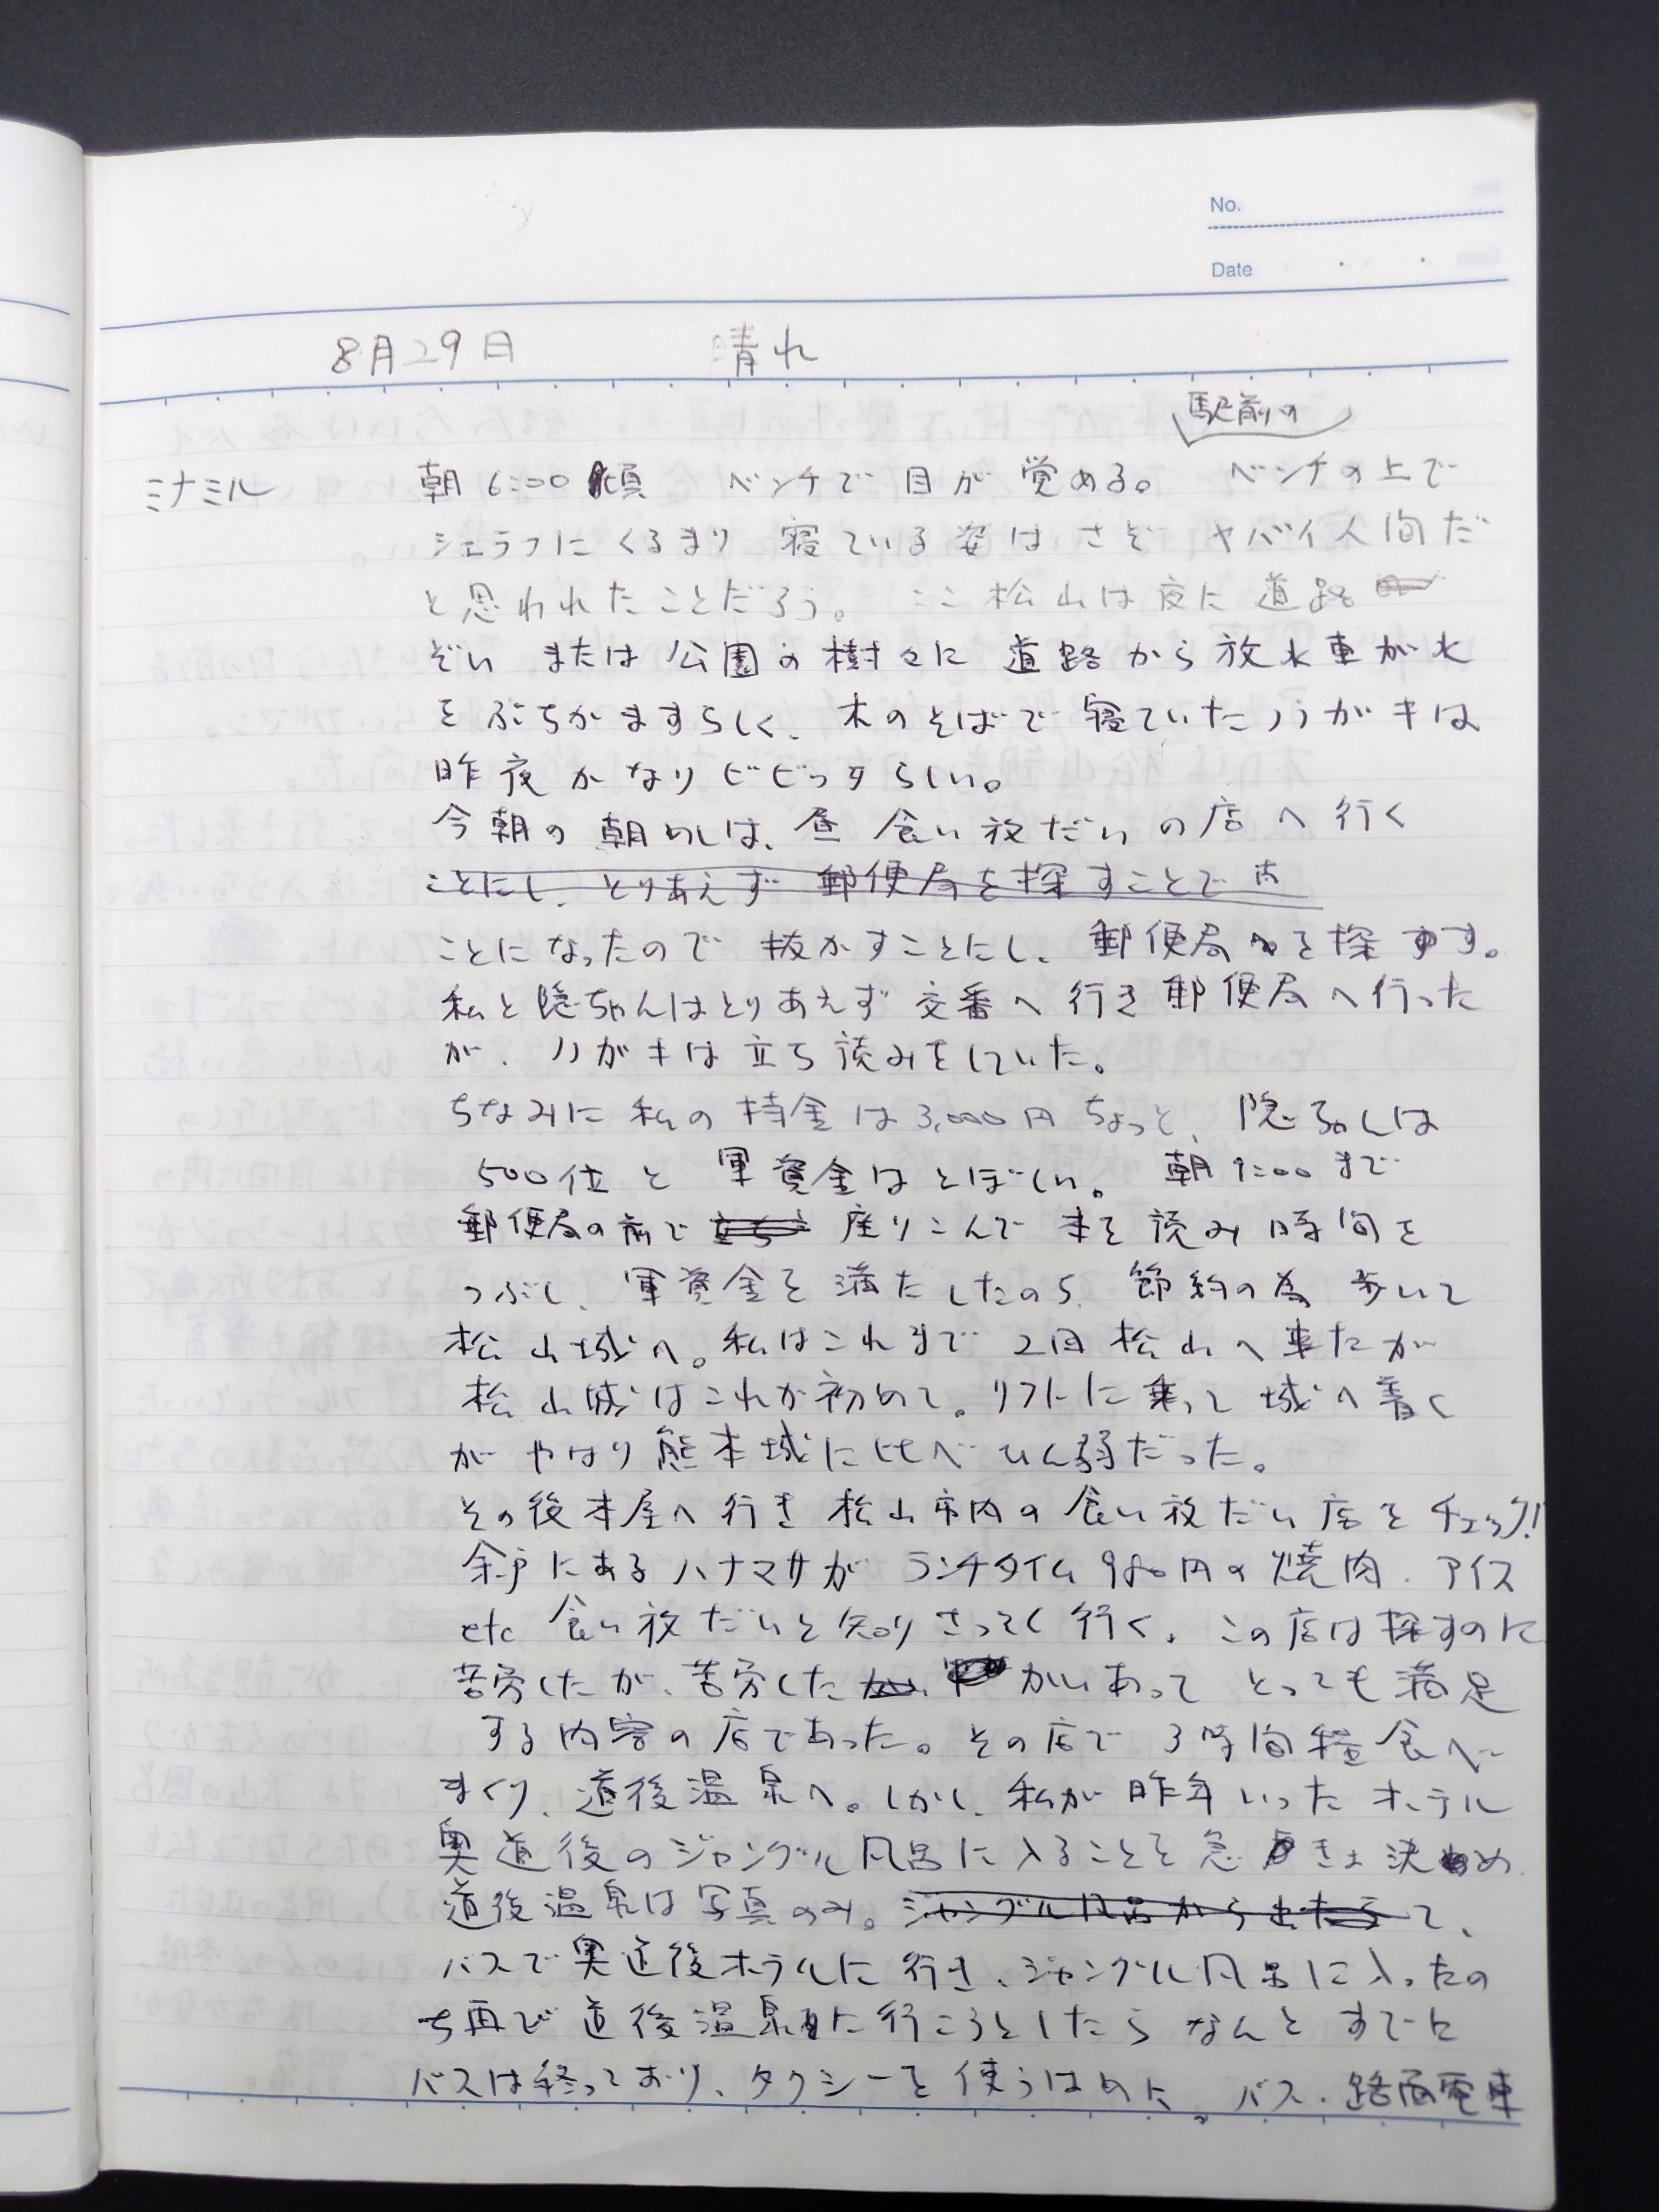 No.
Date
8月29日 晴れ
駅前の
ミナミル 朝6:00頃 ベンチで目が覚める。 ベンチの上で
シェラフにくるまり 寝ている姿は さぞ ヤバイ人間だ
と思われたことだろう。 ここ松山は夜に道路
ぞい または 公園の樹々に 道路から放水車が水
をぶちかますらしく、木のそばで寝ていたハガキは
昨夜かなりビビっすらしい。
今朝の朝めしは、昼 食い放だいの店へ行く
ことにし、とりあえず 郵便局を探すことで
ことになったので 抜かすことにし、郵便局を探す。
私と隠ちゃんはとりあえず 交番へ行き郵便局へ行った
が、ハガキは立ち読みをしていた。
ちなみに私の持金は3,000円ちょっと、隠ちゃんは
500位と 軍資金はとぼしい。 朝9:00まで
郵便局の前で 座りこんで 本を読み時間を
つぶし、軍資金を満たしたのち、節約の為 歩いて
松山城へ。私はこれまで 2回松山へ来たが
松山城はこれが初めて。リフトに乗って城へ着く
が やはり熊本城に比べひん弱だった。
その後本屋へ行き 松山市内の食い放だい店をチェック!
余戸にあるハナマサが ランチタイム980円の焼肉、アイス
etc 食い放だいと知り さっそく行く。この店は探すのに
苦労したが、苦労した かいあって とっても満足
する内容の店であった。その店で 3時間程食べ
まくり、道後温泉へ。しかし、私が昨年いったホテル
奥道後のジャングル風呂に入ることを急きょ決め
道後温泉は写真のみ。ジャングル風呂から出たらて、
バスで奥道後ホテルに行き、ジャングル風呂に入ったの
ち再び道後温泉に行こうとしたら なんと すでに
バスは終っており、タクシーを使うはめに。バス・路面電車